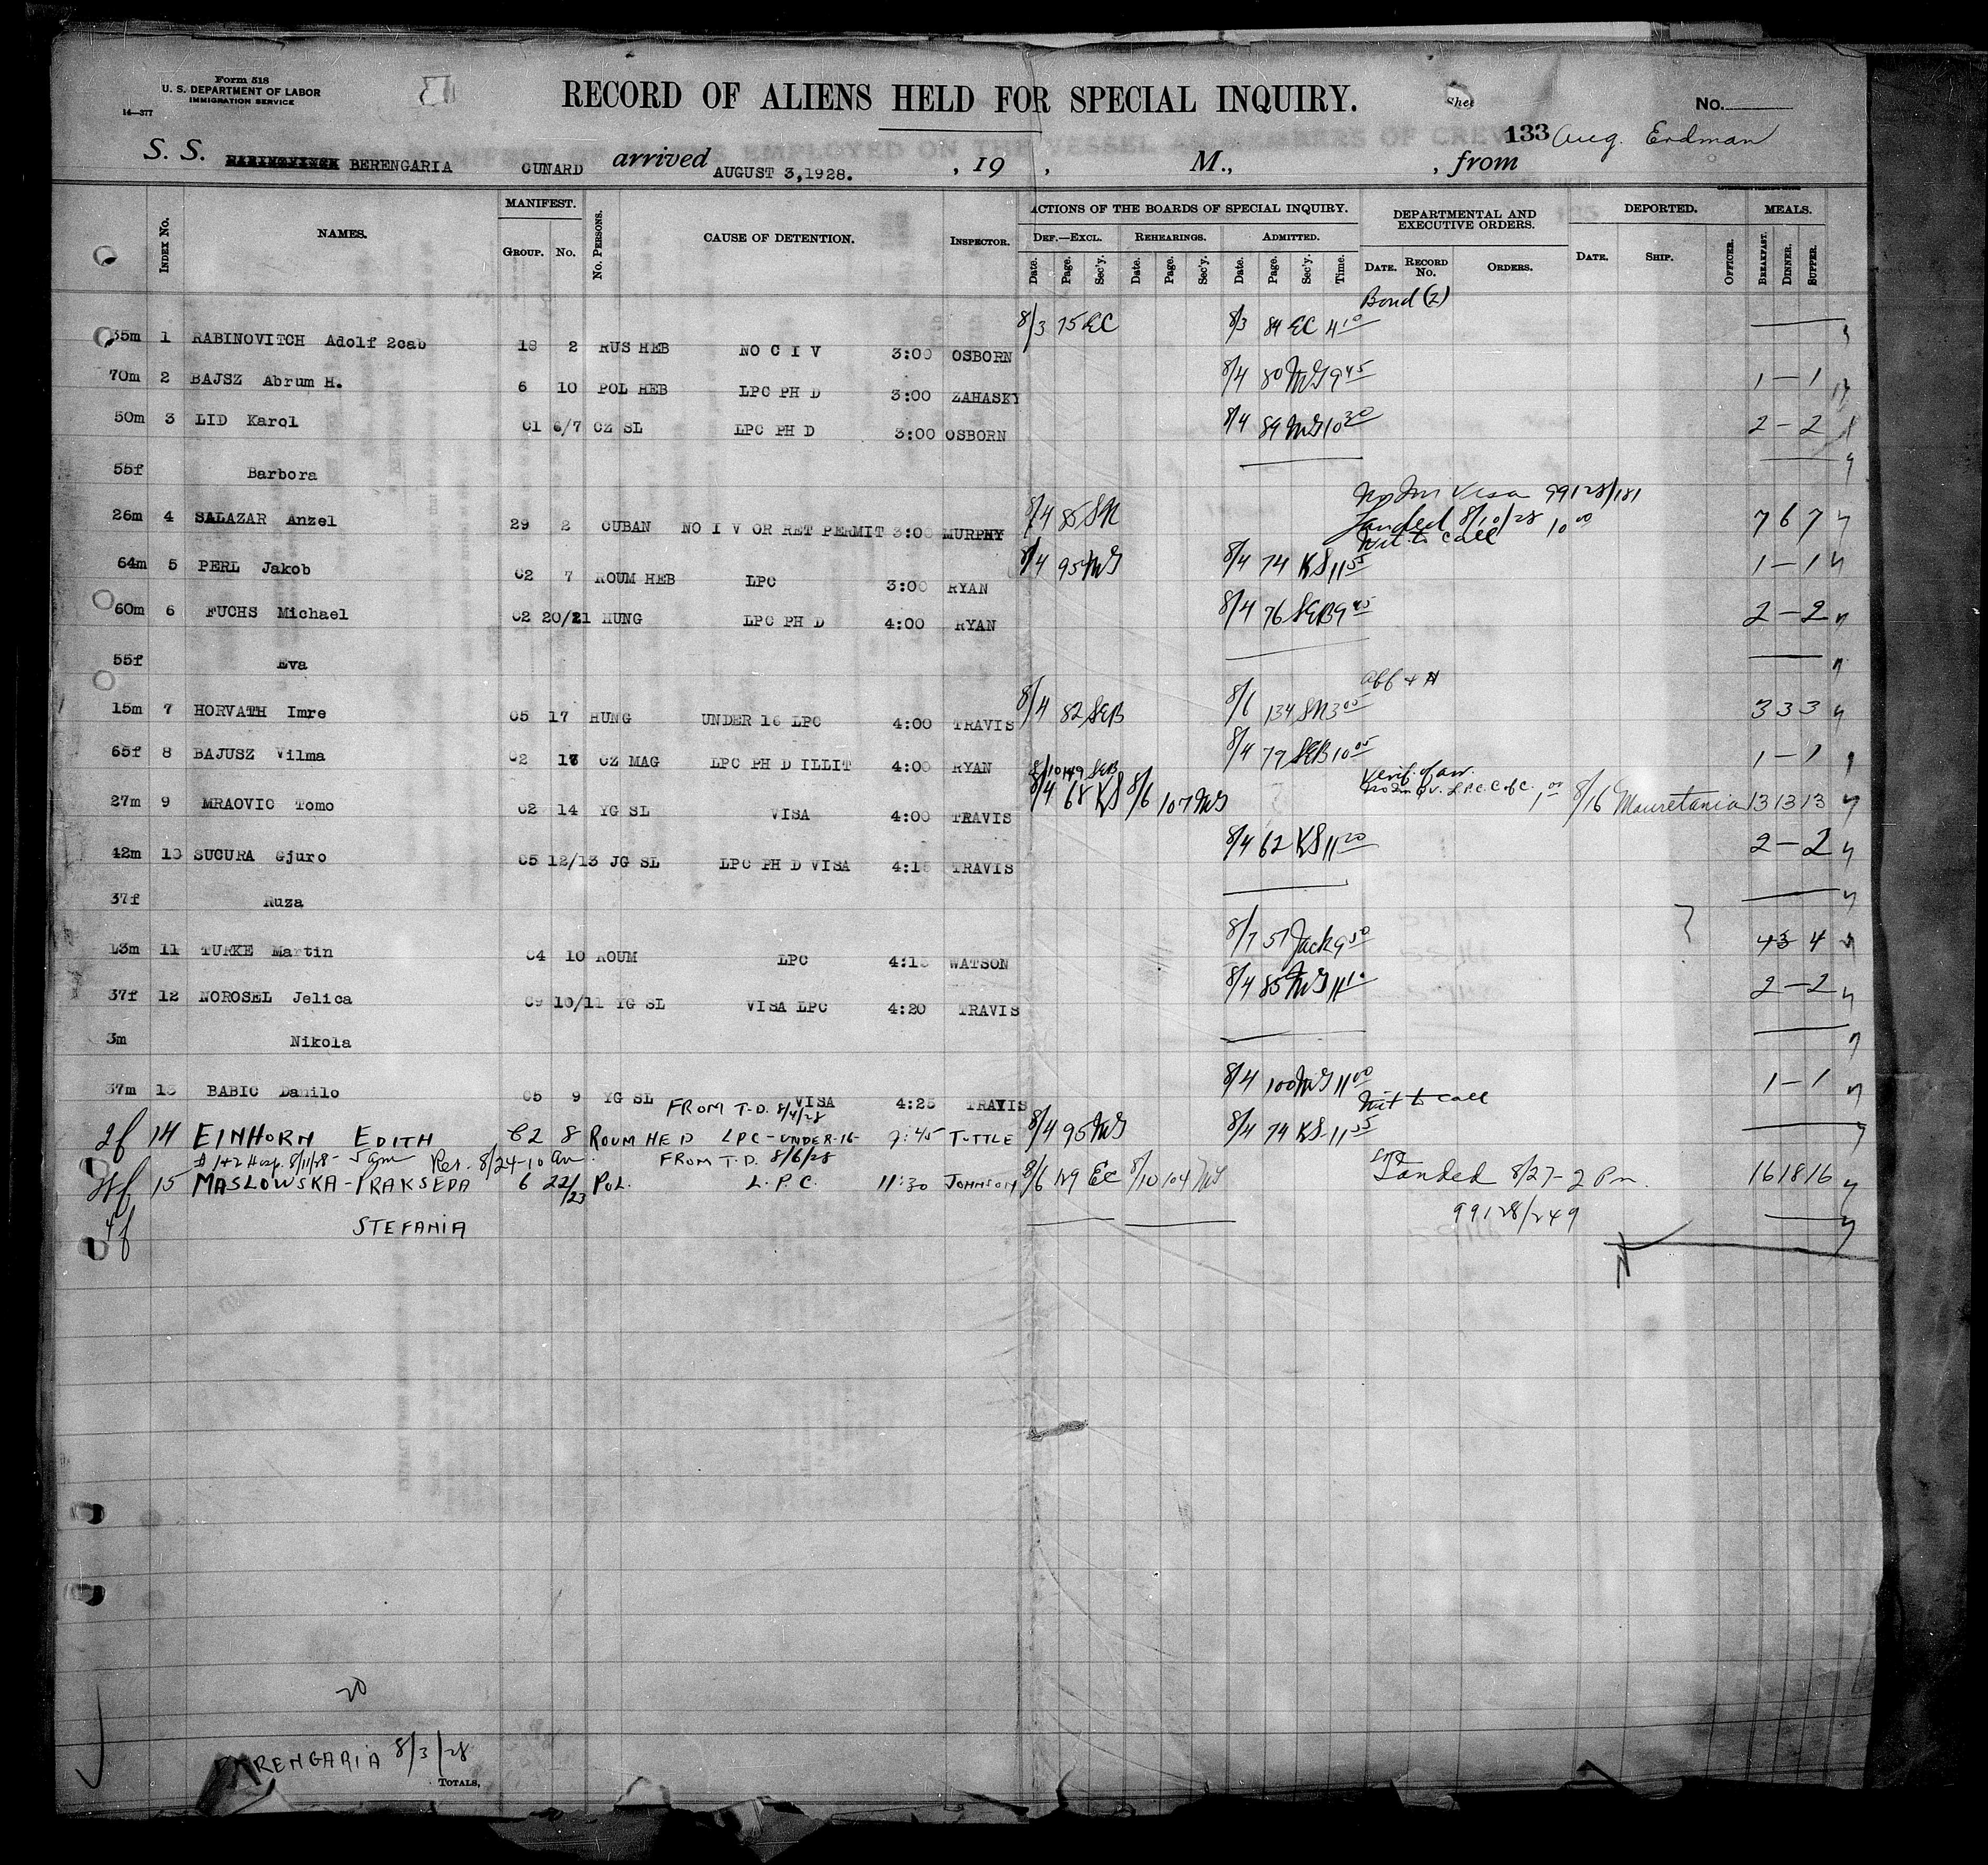 Form 518
U. S. DEPARTMENT OF LABOR
IMMIGRATION SERVICE
14—377
RECORD OF ALIENS HELD FOR SPECIAL INQUIRY.
No.
133 Aug. Erdman
S. S. BERENGARIA CUNARD arrived AUGUST 3,1928. , 19 , M., , from
INDEX No. NAMES. MANIFEST. GROUP. No. No. PERSONS. CAUSE OF DETENTION. INSPECTOR. ACTIONS OF THE BOARDS OF SPECIAL INQUIRY. DEPARTMENTAL AND EXECUTIVE ORDERS. DEPORTED. MEALS.
DEF.—EXCL. REHEARINGS. ADMITTED.
Date. Page. Sec'y. Date. Page. Sec'y. Date. Page. Sec'y. Time. DATE. RECORD No. ORDERS. DATE. SHIP. OFFICER. BREAKFAST. DINNER. SUPPER.
Bond (2)
35m 1 RABINOVITCH Adolf 2cab 18 2 RUS HEB NO C I V 3:00 OSBORN 8/3 75 EC 8/3 84 EC 4 10
70m 2 BAJSZ Abrum H. 6 10 POL HEB LPC PH D 3:00 ZAHASKY 8/4 80 MG 9 45 1 — 1
50m 3 LID Karol C1 6/7 CZ SL LPC PH D 3:00 OSBORN 8/4 89 MG 10 30 2 — 2
55f Barbora
26m 4 SALAZAR Anzel 29 2 CUBAN NO I V OR RET PERMIT 3:00 MURPHY 8/4 85 SN No Im Visa 99128/181 Landed 8/10/28 10 00 7 6 7
64m 5 PERL Jakob C2 7 ROUM HEB LPC 3:00 RYAN 8/4 95 MG 8/4 74 KS 11 55 Wit to call 1 — 1
60m 6 FUCHS Michael C2 20/21 HUNG LPC PH D 4:00 RYAN 8/4 76 SEB 9 45 2 — 2
55f Eva
15m 7 HORVATH Imre C5 17 HUNG UNDER 16 LPC 4:00 TRAVIS 8/4 82 SEB 8/6 134 SN 3 00 3 3 3
65f 8 BAJUSZ Vilma C2 17 CZ MAG LPC PH D ILLIT 4:00 RYAN 8/4 79 SEB 10 05 1 — 1
8/10 149 SEB Verif. of arr.
27m 9 MRAOVIC Tomo C2 14 YG SL VISA 4:00 TRAVIS 8/4 68 KS 8/6 107 MG 1 00 8/16 Mauretania 13 13 13
42m 10 SUCURA Gjuro C5 12/13 JG SL LPC PH D VISA 4:15 TRAVIS 8/4 62 KS 11 20 2 — 2
37f Ruza
13m 11 TURKE Martin C4 10 ROUM LPC 4:15 WATSON 8/7 57 Jack 9 50 4 3 4
37f 12 NOROSEL Jelica C9 10/11 YG SL VISA LPC 4:20 TRAVIS 8/4 85 MG 11 10 2 — 2
3m Nikola
37m 13 BABIC Danilo C5 9 YG SL VISA 4:25 TRAVIS 8/4 100 MG 11 00 1 — 1
FROM T.D. 8/4/28 Wit to call
2f 14 EINHORN EDITH C2 8 ROUM HEB LPC-UNDER-16- 9:45 TUTTLE 8/4 95 MG 8/4 74 KS 11 55
# 1+2 Hosp. 8/11/28 - 5 am Ret. 8/24-10 am. FROM T.D. 8/6/28
15 MASLOWSKA-PRAKSEDA 6 22/23 POL. L.P.C. 11:30 JOHNSON 8/6 129 EC 8/10 104 MG Landed 8/27-2 Pm. 16 18 16
4f STEFANIA 99128/249
20
RENGARIA 8/3/28
TOTALS,